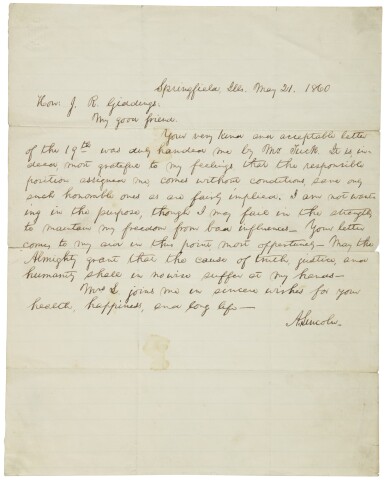 Springfield, Ills. May 21. 1860
Hon: J. R. Giddings:
My good friend.
Your very kind and acceptable letter
of the 19th was duly handed me by Mr. Tuck. It is in-
deed, most grateful to my feelings, that the responsible
position assigned me, comes without conditions, save only
such honorable ones as are fairly implied. I am not want-
ing in the purpose, though I may fail in the strength
to maintain my freedom from bad influences— Your letter
comes to my aid in this point, most opportunely— May the
Almighty grant that the cause of truth, justice, and
humanity, shall in no wise suffer at my hands—
Mrs L. joins me in sincere wishes for your
health, happiness, and long life—
A. Lincoln.